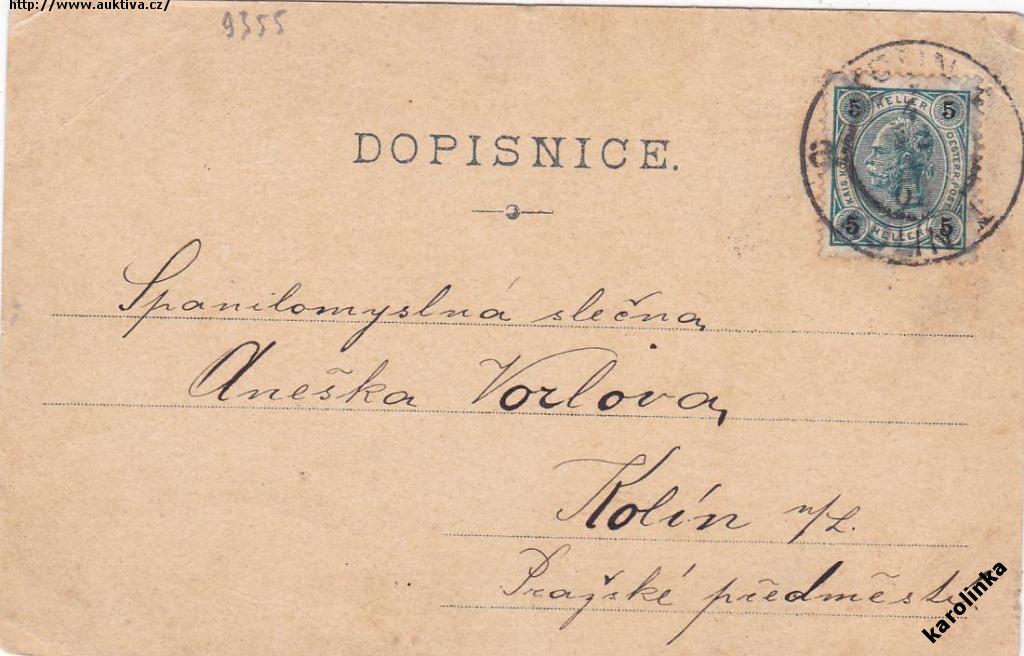 http://www.auktiva.cz/
9355
DOPISNICE.
5 HELLER 5
KAIS. KÖN.
OESTERR. POST
5 HELLER 5
Spanilomyslná slečna
Aneška Vorlova,
Kolín n/L.
Pražské předměstí
karolinka